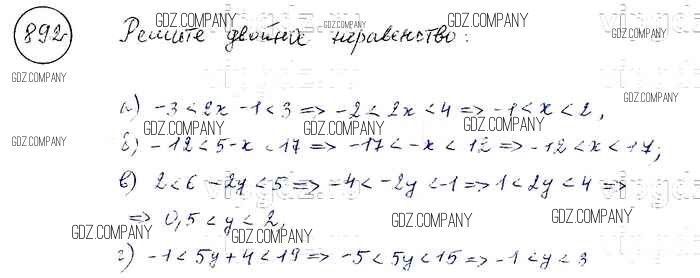 892
Решите двойное неравенство:
а) -3 < 2x - 1 < 3 => -2 < 2x < 4 => -1 < x < 2,
б) -12 < 5 - x < 17 => -17 < -x < 12 => -12 < x < 17;
в) 2 < 6 - 2y < 5 => -4 < -2y < -1 => 1 < 2y < 4 =>
=> 0,5 < y < 2,
г) -1 < 5y + 4 < 19 => -5 < 5y < 15 => -1 < y < 3
GDZ.COMPANY
GDZ.COMPANY
GDZ.COMPANY
GDZ.COMPANY
GDZ.COMPANY
GDZ.COMPANY
GDZ.COMPANY
GDZ.COMPANY
GDZ.COMPANY
GDZ.COMPANY
GDZ.COMPANY
GDZ.COMPANY
GDZ.COMPANY
GDZ.COMPANY